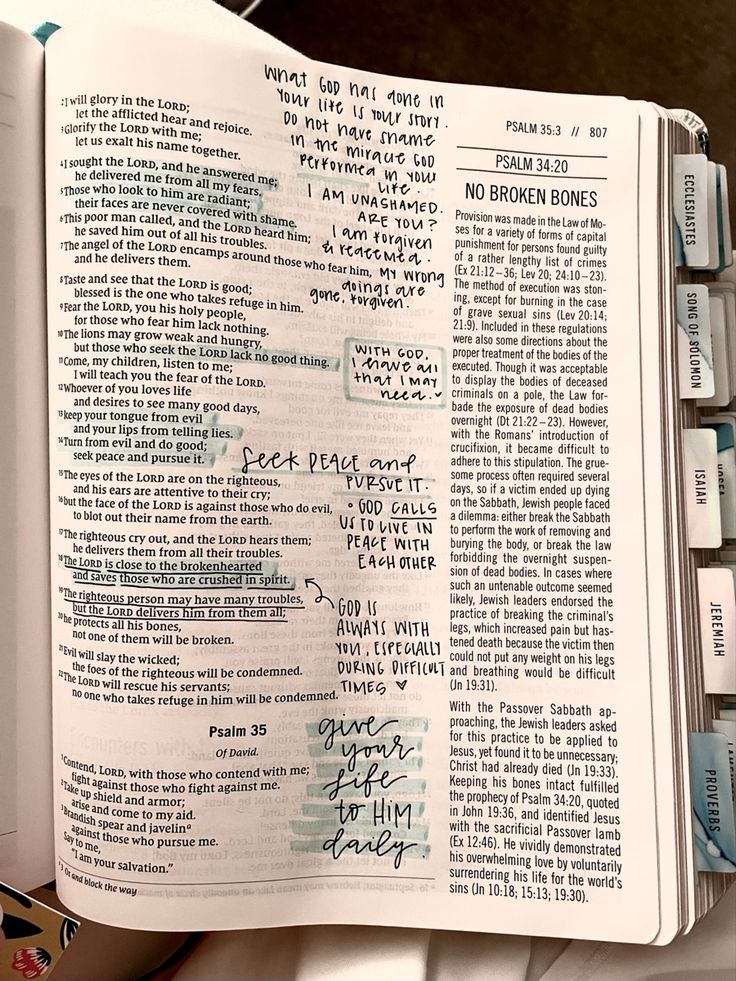 PSALM 35:3 // 807
²I will glory in the LORD;
let the afflicted hear and rejoice.
³Glorify the LORD with me;
let us exalt his name together.
⁴I sought the LORD, and he answered me;
he delivered me from all my fears.
⁵Those who look to him are radiant;
their faces are never covered with shame.
⁶This poor man called, and the LORD heard him;
he saved him out of all his troubles.
⁷The angel of the LORD encamps around those who fear him,
and he delivers them.
⁸Taste and see that the LORD is good;
blessed is the one who takes refuge in him.
⁹Fear the LORD, you his holy people,
for those who fear him lack nothing.
¹⁰The lions may grow weak and hungry,
but those who seek the LORD lack no good thing.
¹¹Come, my children, listen to me;
I will teach you the fear of the LORD.
¹²Whoever of you loves life
and desires to see many good days,
¹³keep your tongue from evil
and your lips from telling lies.
¹⁴Turn from evil and do good;
seek peace and pursue it.
¹⁵The eyes of the LORD are on the righteous,
and his ears are attentive to their cry;
¹⁶but the face of the LORD is against those who do evil,
to blot out their name from the earth.
¹⁷The righteous cry out, and the LORD hears them;
he delivers them from all their troubles.
¹⁸The LORD is close to the brokenhearted
and saves those who are crushed in spirit.
¹⁹The righteous person may have many troubles,
but the LORD delivers him from them all;
²⁰he protects all his bones,
not one of them will be broken.
²¹Evil will slay the wicked;
the foes of the righteous will be condemned.
²²The LORD will rescue his servants;
no one who takes refuge in him will be condemned.
Psalm 35
Of David.
¹Contend, LORD, with those who contend with me;
fight against those who fight against me.
²Take up shield and armor;
arise and come to my aid.
³Brandish spear and javelinᵃ
against those who pursue me.
Say to me,
"I am your salvation."
ᵃ3 Or and block the way
WHAT GOD HAS DONE IN
YOUR LIFE IS YOUR STORY.
DO NOT HAVE SHAME
IN THE MIRACLE GOD
PERFORMED IN YOUR
LIFE.
I AM UNASHAMED.
ARE YOU?
I am forgiven
& redeemed.
MY WRONG
doings are
gone. forgiven.
WITH GOD,
I have all
that I may
need.
Seek PEACE and
PURSUE IT.
• GOD CALLS
US TO LIVE IN
PEACE WITH
EACH OTHER
GOD IS
ALWAYS WITH
YOU, ESPECIALLY
DURING DIFFICULT
TIMES ♡
give
your
life
to HIM
daily.
PSALM 34:20
NO BROKEN BONES
Provision was made in the Law of Mo-
ses for a variety of forms of capital
punishment for persons found guilty
of a rather lengthy list of crimes
(Ex 21:12–36; Lev 20; 24:10–23).
The method of execution was ston-
ing, except for burning in the case
of grave sexual sins (Lev 20:14;
21:9). Included in these regulations
were also some directions about the
proper treatment of the bodies of the
executed. Though it was acceptable
to display the bodies of deceased
criminals on a pole, the Law for-
bade the exposure of dead bodies
overnight (Dt 21:22–23). However,
with the Romans' introduction of
crucifixion, it became difficult to
adhere to this stipulation. The grue-
some process often required several
days, so if a victim ended up dying
on the Sabbath, Jewish people faced
a dilemma: either break the Sabbath
to perform the work of removing and
burying the body, or break the law
forbidding the overnight suspen-
sion of dead bodies. In cases where
such an untenable outcome seemed
likely, Jewish leaders endorsed the
practice of breaking the criminal's
legs, which increased pain but has-
tened death because the victim then
could not put any weight on his legs
and breathing would be difficult
(Jn 19:31).
With the Passover Sabbath ap-
proaching, the Jewish leaders asked
for this practice to be applied to
Jesus, yet found it to be unnecessary;
Christ had already died (Jn 19:33).
Keeping his bones intact fulfilled
the prophecy of Psalm 34:20, quoted
in John 19:36, and identified Jesus
with the sacrificial Passover lamb
(Ex 12:46). He vividly demonstrated
his overwhelming love by voluntarily
surrendering his life for the world's
sins (Jn 10:18; 15:13; 19:30).
ECCLESIASTES
SONG OF SOLOMON
ISAIAH
HOSEA
JEREMIAH
PROVERBS